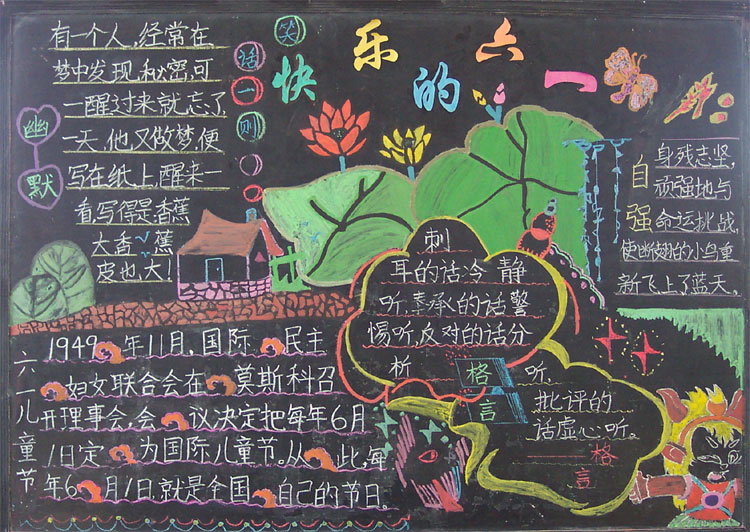 快乐的六一
笑
话
一
则
幽
默
有一个人,经常在
梦中发现秘密,可
一醒过来就忘了,
一天,他又做梦便
写在纸上,醒来一
看,写得是香蕉
大香蕉
皮也大!
自
强
身残志坚,
顽强地与
命运挑战,
使断翅的小鸟重
新飞上了蓝天。
刺
耳的话冷静
听,奉承的话警
惕听,反对的话分
析
听,
批评的
话虚心听。
格
言
——格
言
六一儿童节
1949年11月,国际民主
妇女联合会在莫斯科召
开理事会,会议决定把每年6月
1日定为国际儿童节。从此,每
年6月1日,就是全国自己的节日。